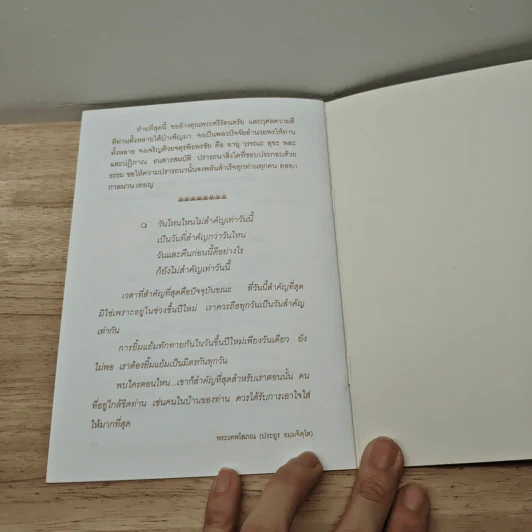 ท้ายที่สุดนี้ ขออ้างคุณพระศรีรัตนตรัย และกุศลความดี
ที่ท่านทั้งหลายได้บำเพ็ญมา จงเป็นพลวปัจจัยอำนวยพรให้ท่าน
ทั้งหลาย จงเจริญด้วยจตุรพิธพรชัย คือ อายุ วรรณะ สุขะ พละ
และปฏิภาณ ธนสารสมบัติ ปรารถนาสิ่งใดที่ชอบประกอบด้วย
ธรรม ขอให้ความปรารถนานั้นจงพลันสำเร็จทุกท่านทุกคน ตลอด
กาลนาน เทอญ
วันไหนไหนไม่สำคัญเท่าวันนี้
เป็นวันที่สำคัญกว่าวันไหน
วันและคืนก่อนนี้ดีอย่างไร
ก็ยังไม่สำคัญเท่าวันนี้
เวลาที่สำคัญที่สุดคือปัจจุบันขณะ ที่วันนี้สำคัญที่สุด
มิใช่เพราะอยู่ในช่วงขึ้นปีใหม่ เราควรถือทุกวันเป็นวันสำคัญ
เท่ากัน
การยิ้มแย้มทักทายกันในวันขึ้นปีใหม่เพียงวันเดียว ยัง
ไม่พอ เราต้องยิ้มแย้มเป็นมิตรกันทุกวัน
พบใครตอนไหน...เขาก็สำคัญที่สุดสำหรับเราตอนนั้น คน
ที่อยู่ใกล้ชิดท่าน เช่นคนในบ้านของท่าน ควรได้รับการเอาใจใส่
ให้มากที่สุด
พระเทพโสภณ (ประยูร ธมฺมจิตฺโต)